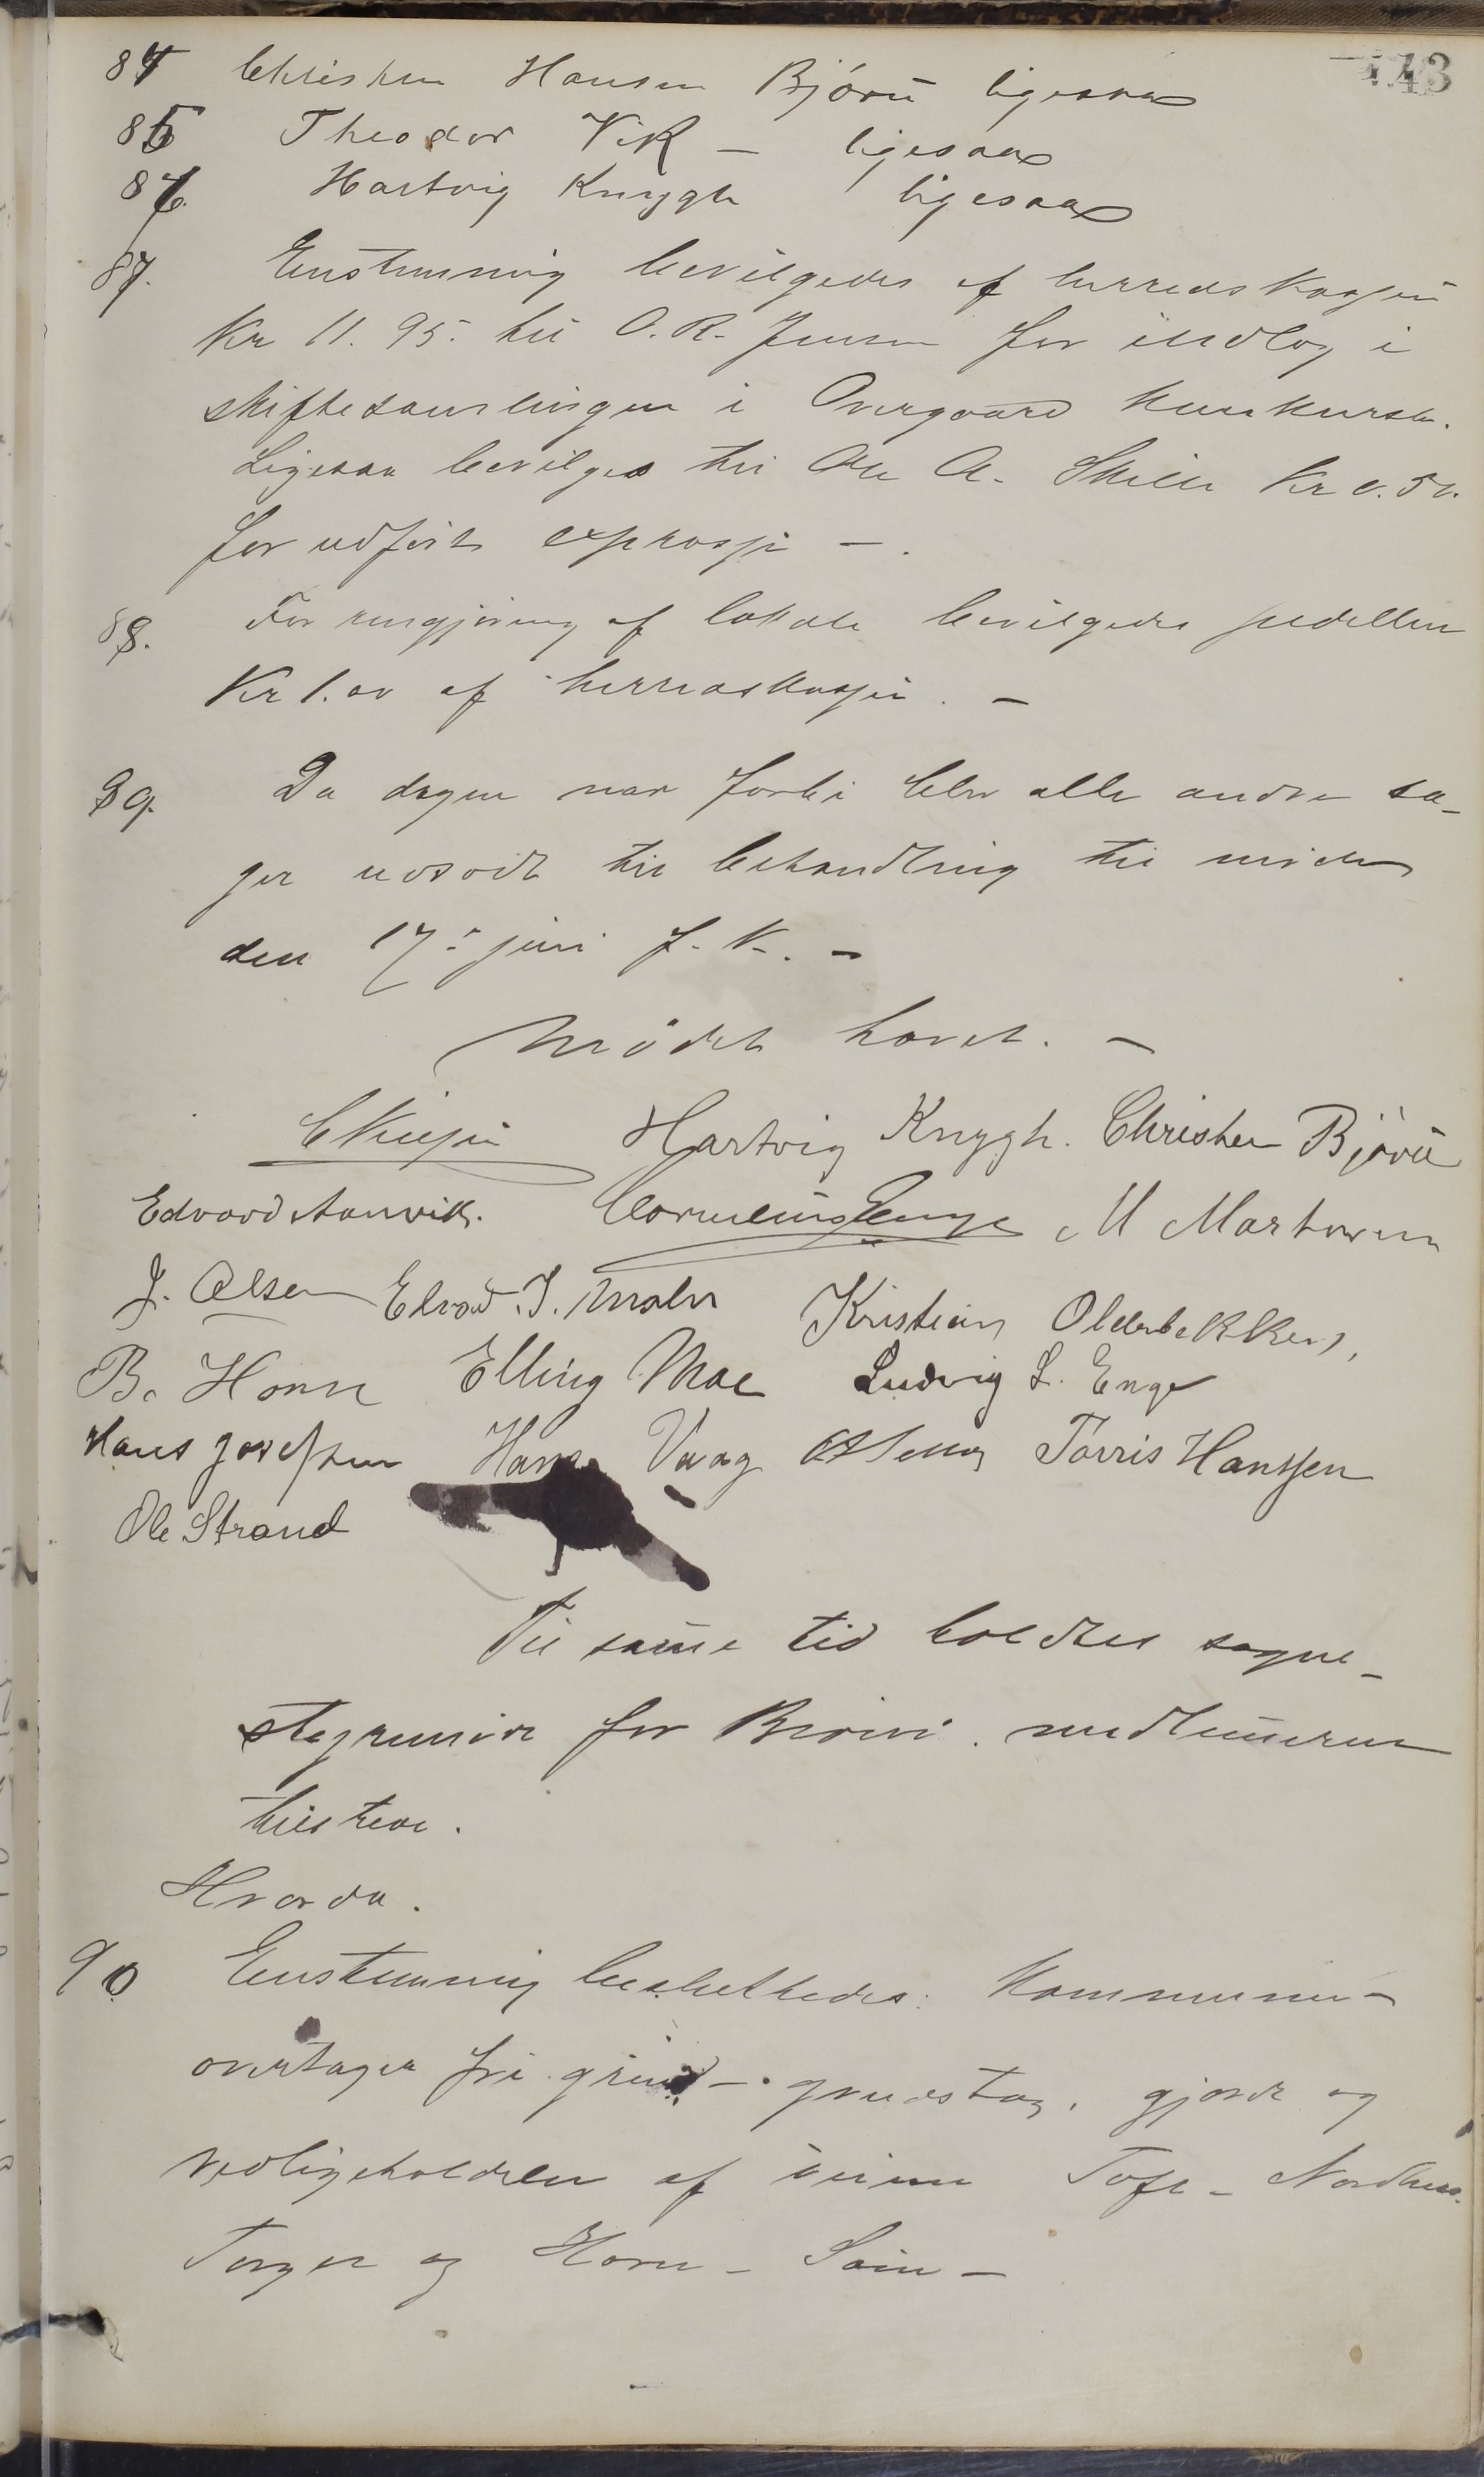 143
84 Christen Hansen Bjørn ligesaa
85 Theodor Vik – ligesaa
86. Hartvig Knygh ligesaa
87. Enstemmig bevilgedes af herredskassen
Kr 11.95. til O. R. Jensen for indlæg i
skiftesamlingen i Overgaard konkurs.
Ligesaa bevilges til Ole A. Kr 0.50.
for udført express –.
88. For rengjøring af lokale bevilgedes pedellen
Kr 1.00 af herredskassen. –
89. Da dagen var forbi blev alle andre sa-
ger udsadt til behandling til møde
den 17de juni f. k. –
Mødet hævet. –
Hartvig Knygh. Christen Bjørn
Edvard Aanvik. Cornelius Enge M Martinsen
J. Olsen Edvard J. Kristian Olderbakken,
B. Horn Elling Moe Ludvig L. Enge
Hans Josefsen Hans Vaag Torris Hanssen
Ole Strand
Til samme tid holdtes sogne-
styremøde for Brønø. medlemmerne
tilstede.
Hvorda.
90 Enstemmig besluttedes: Kommunen
overtager fri grind – grustag, gjærde og
vedligeholdelse af veiene Toft – Nordhus
Torgen og Horn – Søm –